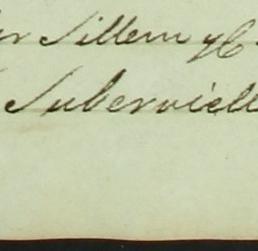 Sillem yC
Suberviell